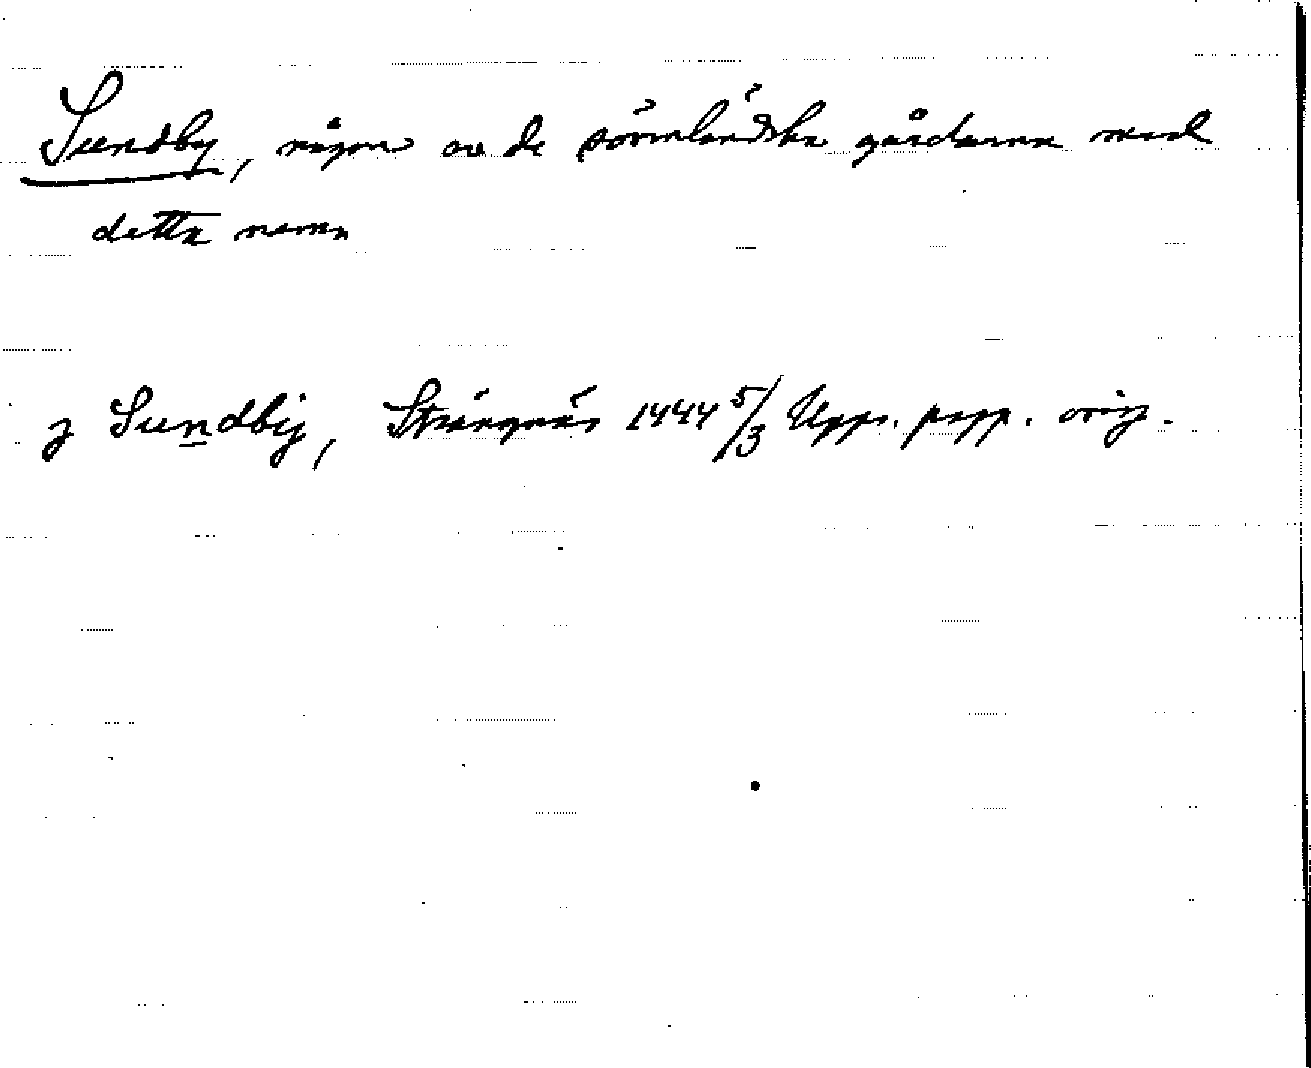 Sundby, någon av de sörmländska gårdarna med
detta namn
j Sundbij, Strängnäs 1444 5/3 Upps. papp. orig.